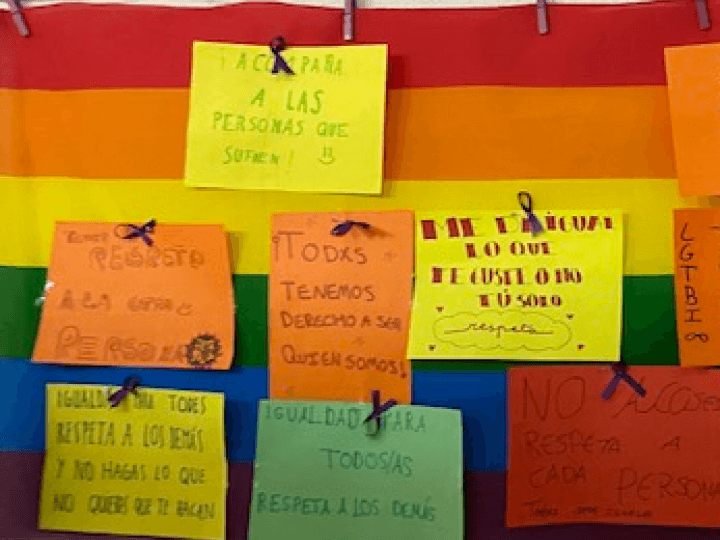 ¡ACOMPAÑA
A LAS
PERSONAS QUE
SUFREN!
RESPETO
A LA OTRA
PERSONA
¡TODXS
TENEMOS
DERECHO A SER
QUIEN SOMOS!
ME DA IGUAL
LO QUE
TE GUSTE O NO
TÚ SOLO
respeta
LGTBI
IGUALDAD PARA TODES
RESPETA A LOS DEMÁS
Y NO HAGAS LO QUE
NO QUIERES QUE TE HAGAN
IGUALDAD PARA
TODOS/AS
RESPETA A LOS DEMÁS
NO
RESPETA A
CADA PERSONA